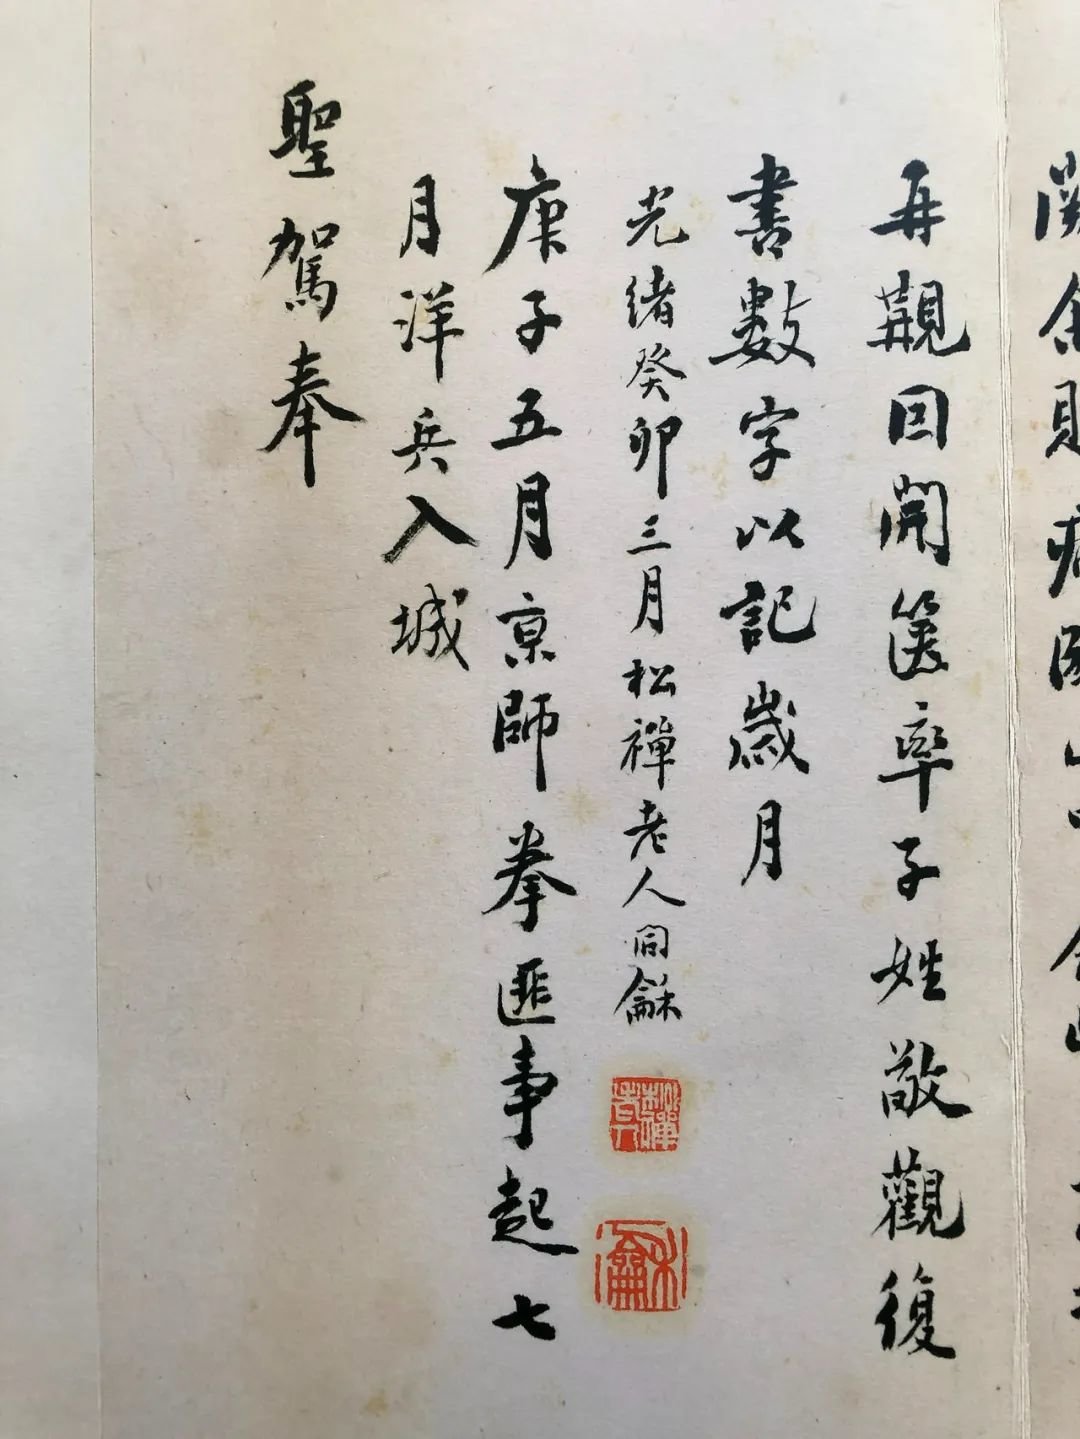 再覯囙開篋率子姓敬觀復
書數字以記歲月
光緒癸卯三月松禪老人同龢
松禪老人
庚子五月京師拳匪事起七
月洋兵入城
聖駕奉